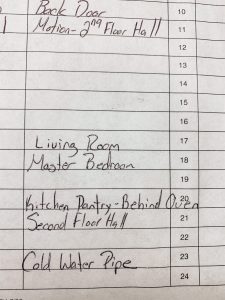 Back Door 10
Motion-2nd Floor Hall 11
12
13
14
15
16
Living Room 17
Master Bedroom 18
19
Kitchen Pantry-Behind Oven 20
Second Floor Hall 21
22
Cold Water Pipe 23
24